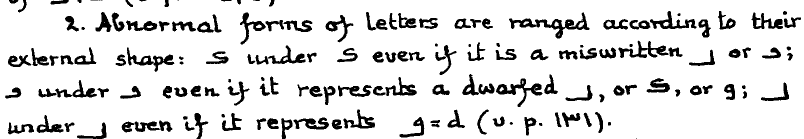 2. Abnormal forms of letters are ranged according to their
external shape: S under S even if it is a miswritten or
under even if it represents a dwarfed , or S, or g;
under even if it represents g=d (v. p. 131).